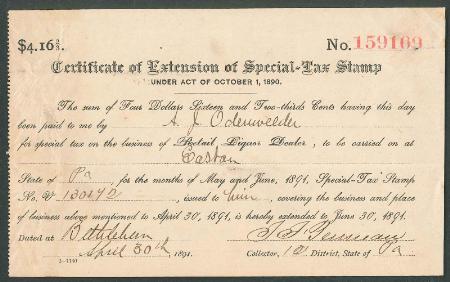 $4.16 2/3. No. 159169
Certificate of Extension of Special-Tax Stamp
UNDER ACT OF OCTOBER 1, 1890.
The sum of Four Dollars Sixteen and Two-thirds Cents having this day
been paid to me by A. J. Odenwelder
for special tax on the business of Retail Liquor Dealer, to be carried on at
Easton
State of Pa, for the months of May and June, 1891, Special-Tax Stamp
No. 130472, issued to him, covering the business and place
of business above mentioned to April 30, 1891, is hereby extended to June 30, 1891.
Dated at Bethlehem
April 30th, 1891. Collector, 1st District, State of Pa